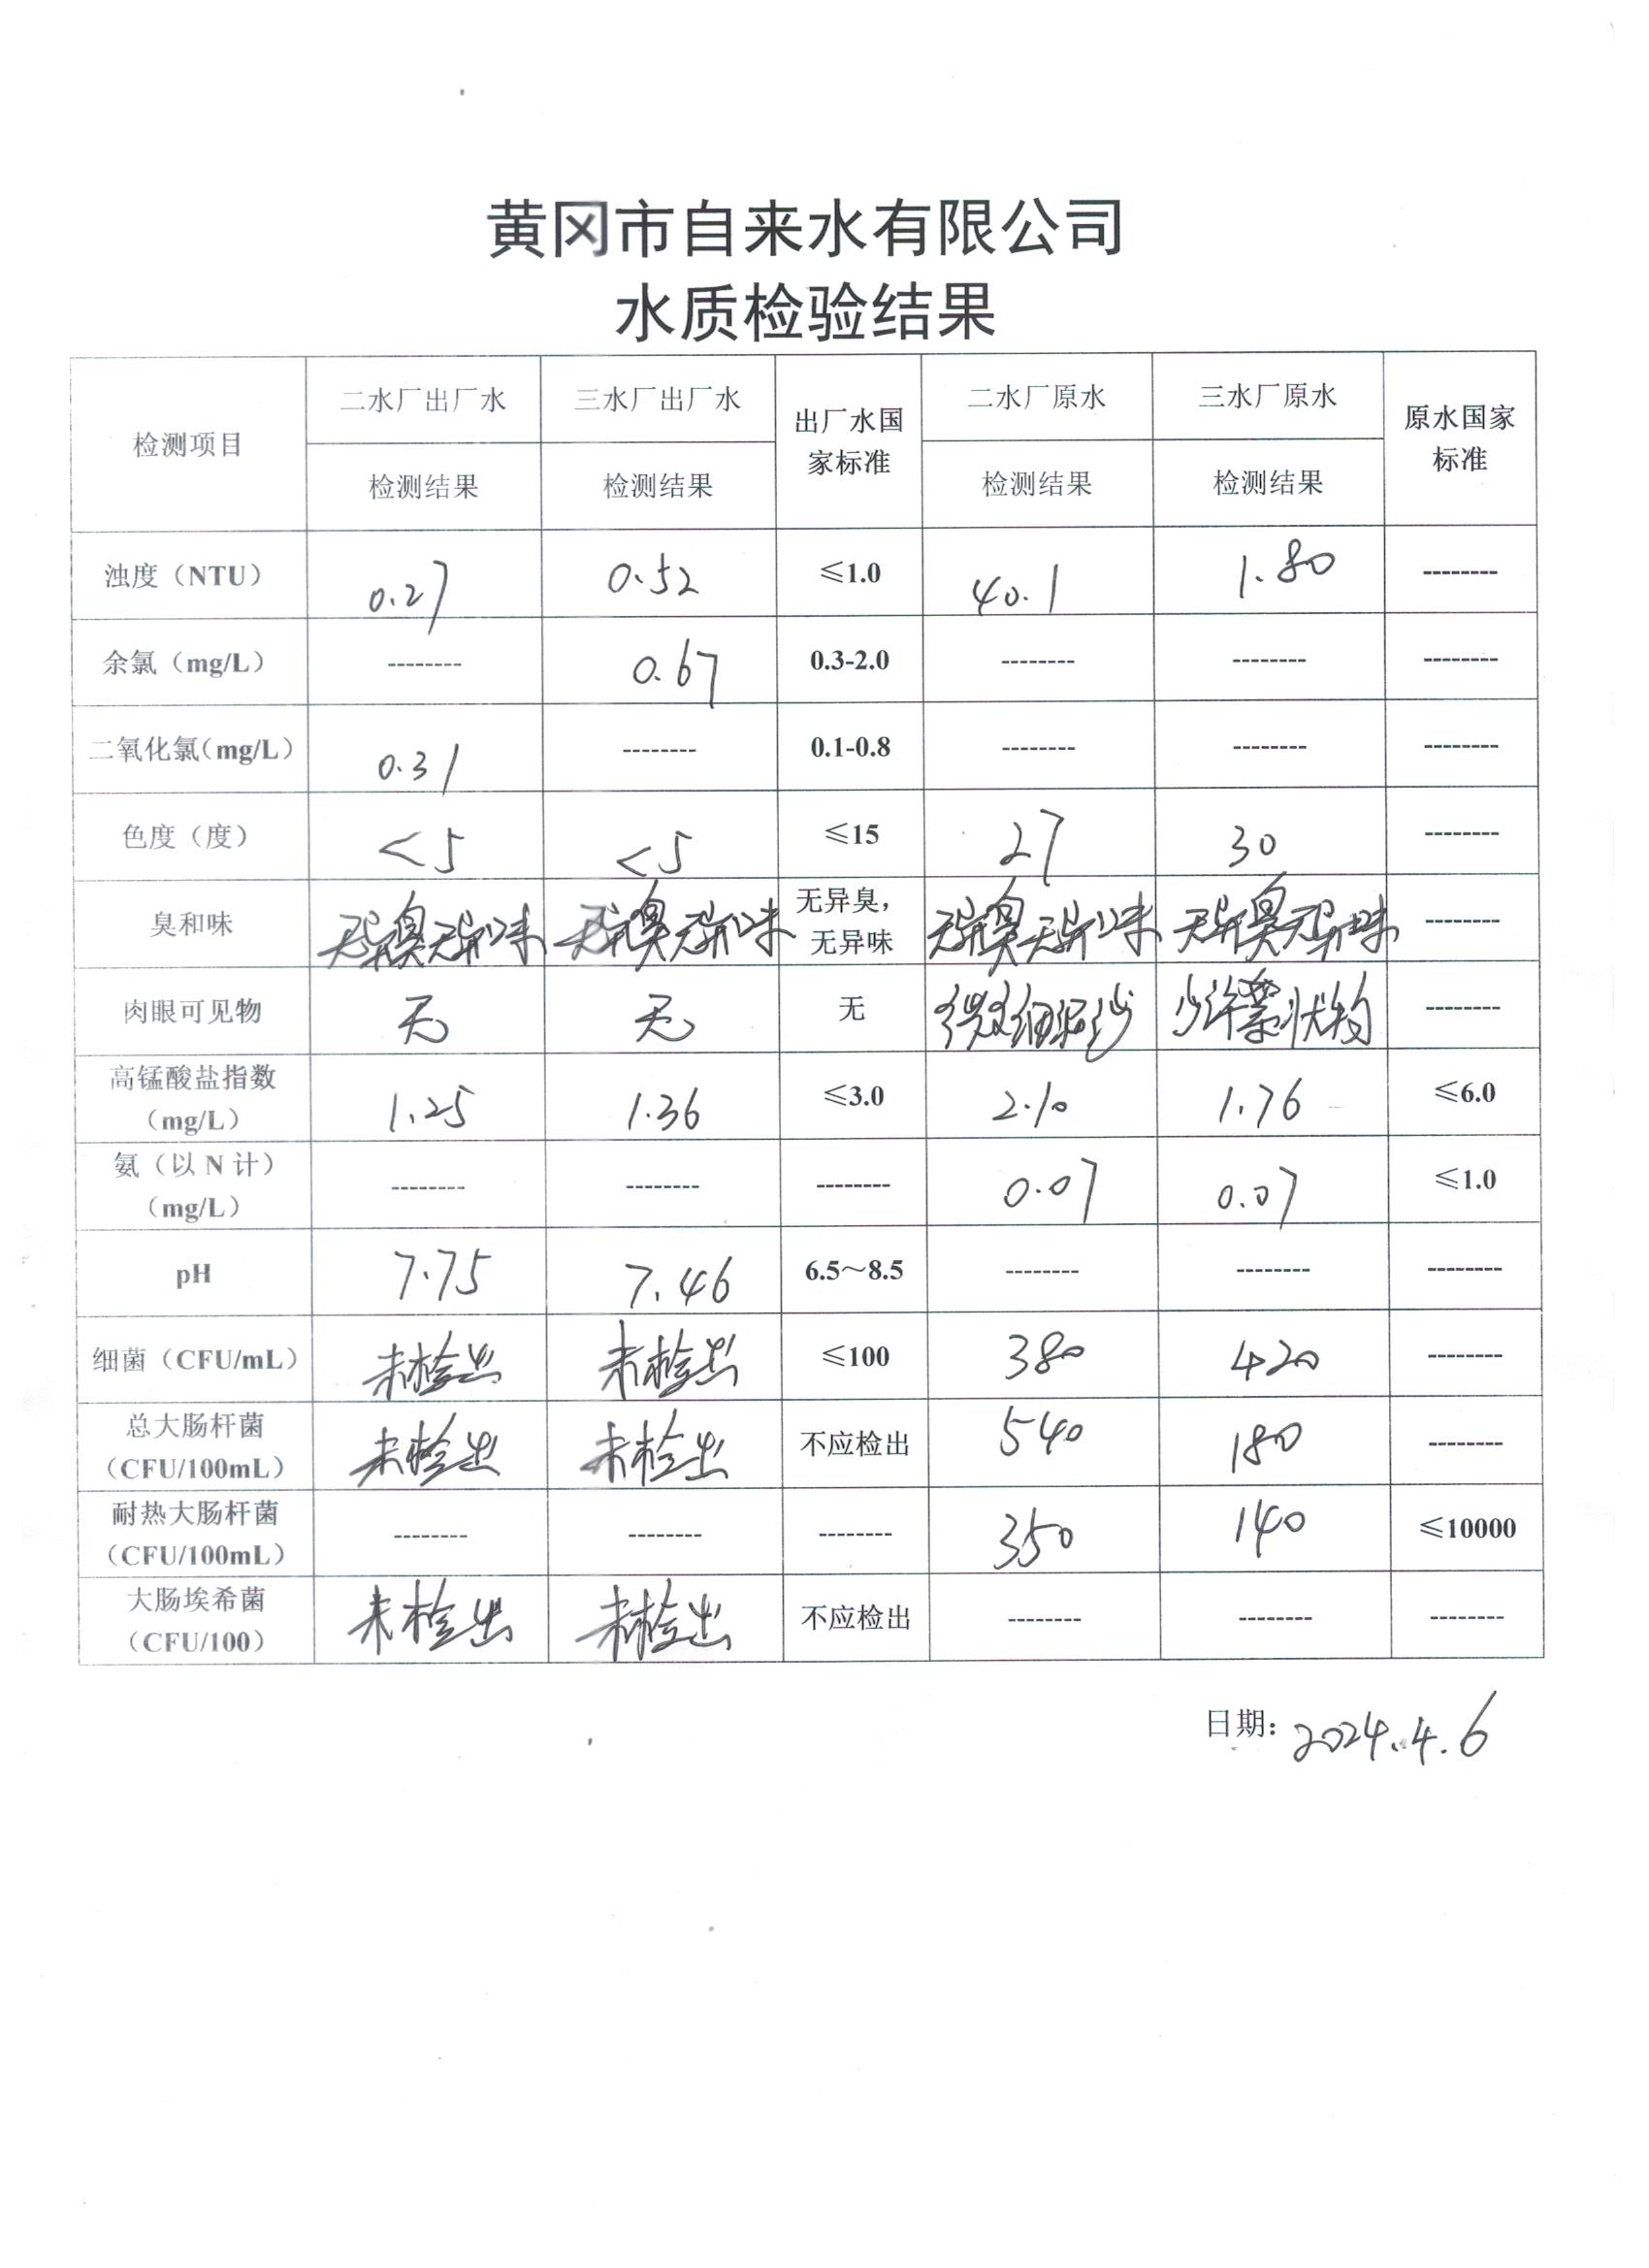 黄冈市自来水有限公司
水质检验结果
检测项目 二水厂出厂水 三水厂出厂水 出厂水国家标准 二水厂原水 三水厂原水 原水国家标准
检测结果 检测结果 检测结果 检测结果
浊度（NTU） 0.27 0.52 ≤1.0 40.1 1.80 --------
余氯（mg/L） -------- 0.67 0.3-2.0 -------- -------- --------
二氧化氯（mg/L） 0.31 -------- 0.1-0.8 -------- -------- --------
色度（度） <5 <5 ≤15 27 30 --------
臭和味 无异臭无异味 无异臭无异味 无异臭，无异味 无异臭无异味 无异臭无异味 --------
肉眼可见物 无 无 无 微细泥沙 少许絮状物 --------
高锰酸盐指数（mg/L） 1.25 1.36 ≤3.0 2.10 1.76 ≤6.0
氨（以 N 计）（mg/L） -------- -------- -------- 0.07 0.07 ≤1.0
pH 7.75 7.46 6.5～8.5 -------- -------- --------
细菌（CFU/mL） 未检出 未检出 ≤100 380 420 --------
总大肠杆菌（CFU/100mL） 未检出 未检出 不应检出 540 180 --------
耐热大肠杆菌（CFU/100mL） -------- -------- -------- 350 140 ≤10000
大肠埃希菌（CFU/100） 未检出 未检出 不应检出 -------- -------- --------
日期: 2024.4.6